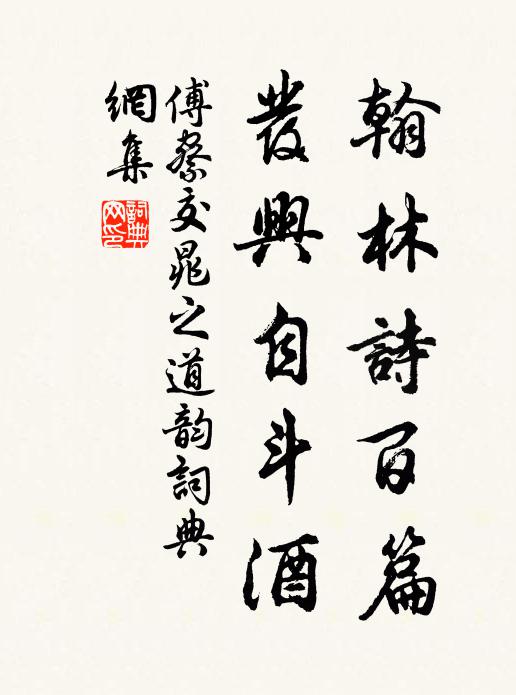 翰林詩百篇
發興自斗酒
傅察次晁之道韵詞典
網集
詞典网印